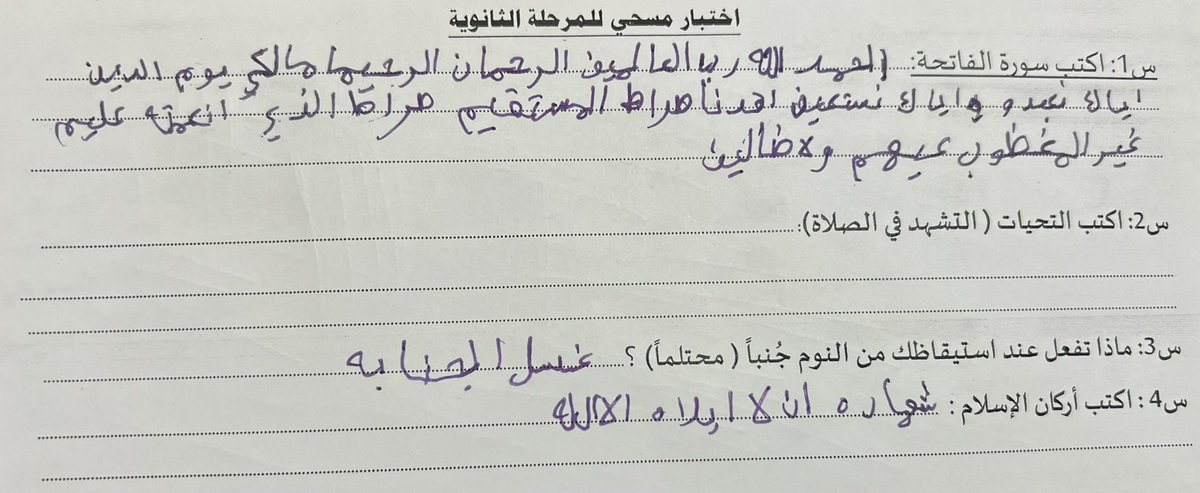 اختبار مسحي للمرحلة الثانوية
س1: اكتب سورة الفاتحة: الحمد الله رب العالمين الرحمان الرحيم مالكي يوم الدين
اياك نعبدو واياك نستعين اهدنا صراط المستقيم صراط الذي انعمته عليهم
غير المغظوب عيهم ولاظالين
س2: اكتب التحيات ( التشهد في الصلاة):
س3: ماذا تفعل عند استيقاظك من النوم جُنباً ( محتلماً) ؟ غسل الجنابه
س4 : اكتب أركان الإسلام : شهاره ان لا ايلاه الاالله